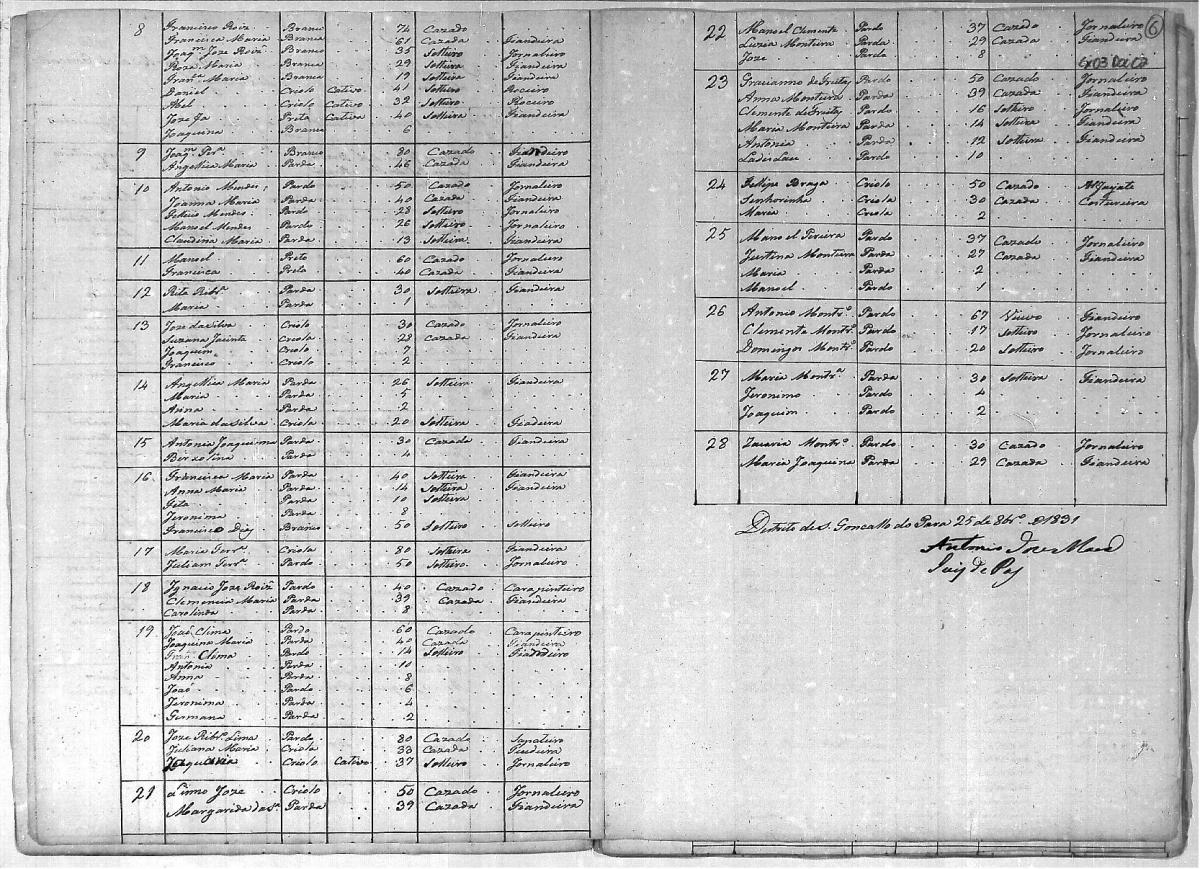 8 Francisco Roiz Branco 74 Cazado
Francisca Maria Branca 61 Cazada Fiandeira
Joaq.m Joze Roiz Branco 35 Solteiro Jornaleiro
Roza Maria Branca 29 Solteira Fiandeira
Fran.ca Maria Branca 19 Solteira Fiandeira
Daniel Criolo Cativo 41 Solteiro Roceiro
Abel Criolo Cativo 32 Solteiro Roceiro
Jozefa Preta Cativa 40 Solteira Fiandeira
Joaquina Branca 6
9 Joaq.m Per.a Branco 80 Cazado Fiandeiro
Angellica Maria Parda 46 Cazada Fiandeira
10 Antonio Mendes Pardo 50 Cazado Jornaleiro
Joanna Maria Parda 40 Cazada Fiandeira
Mendes Pardo 28 Solteiro Jornaleiro
Manoel Mendes Pardo 26 Solteiro Jornaleiro
Claudina Maria Parda 13 Solteira Fiandeira
11 Manoel Preto 60 Cazado Jornaleiro
Francisca Preta 40 Cazada Fiandeira
12 Rita Ribr.a Parda 30 Solteira Fiandeira
Maria Parda 1
13 Joze da Silva Criolo 30 Cazado Jornaleiro
Suzana Jacinta Criola 28 Cazada Fiandeira
Joaquim Criolo 7
Francisco Criolo 2
14 Angellica Maria Parda 26 Solteira Fiandeira
Maria Parda 5
Anna Parda 2
Maria da Silva Criola 20 Solteira Fiadeira
15 Antonia Joaquina Parda 30 Cazada Fiandeira
Parda 4
16 Francisca Maria Parda 40 Solteira Fiandeira
Anna Maria Parda 14 Solteira Fiandeira
Parda 10 Solteira
Jeronima Parda 8
Francisco Branco 50 Solteiro Solteiro
17 Maria Ferr.a Criola 80 Solteira Fiandeira
Juliam Ferr.a Pardo 50 Solteiro Jornaleiro
18 Ignacio Joze Roiz Pardo 40 Cazado Carapinteiro
Clemencia Maria Parda 39 Cazada Fiandeira
Carolinda Parda 8
19 José Clima Pardo 60 Cazado Carapinteiro
Joaquina Maria Parda 40 Cazada Fiandeira
Clima Pardo 14 Solteiro Fiandeiro
Antonia Parda 10
Anna Parda 8
Joaõ Pardo 6
Jeronima Parda 4
Germana Parda 2
20 Joze Ribr.o Lima Pardo 80 Cazado Sapateiro
Juliana Maria Criola 33 Cazada
Criolo Cativo 37 Solteiro Jornaleiro
21 Joze Criolo 50 Cazado Jornaleiro
Margarida da S.a Parda 39 Cazada Fiandeira
6
22 Manoel Clemente Pardo 37 Cazado Jornaleiro
Luzia Monteira Parda 29 Cazada Fiandeira
Joze Pardo 8
23 Gracianno de Freitas Pardo 50 Cazado Jornaleiro
Anna Monteira Parda 39 Cazada Fiandeira
Clemente de Freitas Pardo 16 Solteiro Jornaleiro
Maria Monteira Parda 14 Solteira Fiandeira
Antonia Parda 12 Solteira Fiandeira
Ladislau Pardo 10
24 Fellipe Braga Criolo 50 Cazado Alfayate
Senhorinha Criola 30 Cazada Costureira
Maria Criola 2
25 Manoel Pereira Pardo 37 Cazado Jornaleiro
Justina Monteira Parda 27 Cazada Fiandeira
Maria Parda 2
Manoel Pardo 1
26 Antonio Montr.o Pardo 67 Viuvo Fiandeiro
Clemente Montr.o Pardo 17 Solteiro Jornaleiro
Domingos Montr.o Pardo 20 Solteiro Jornaleiro
27 Maria Montr.a Parda 30 Solteira Fiandeira
Jeronimo Pardo 4
Joaquim Pardo 2
28 Zacaria Montr.o Pardo 30 Cazado Jornaleiro
Maria Joaquina Parda 29 Cazada Fiandeira
Distrito de S. Goncallo do Para 25 de 8br.o 1831
Antonio Joze
Juiz de Pas